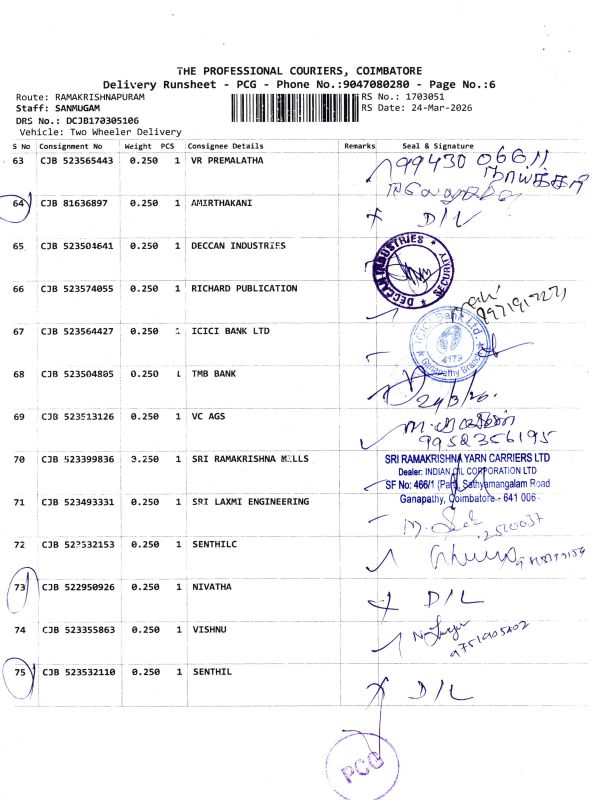 THE PROFESSIONAL COURIERS, COIMBATORE
Delivery Runsheet - PCG - Phone No.:9047080280 - Page No.:6
Route: RAMAKRISHNAPURAM RS No.: 1703051
Staff: SANMUGAM RS Date: 24-Mar-2026
DRS No.: DCJB170305106
Vehicle: Two Wheeler Delivery
S No Consignment No Weight PCS Consignee Details Remarks Seal & Signature
63 CJB 523565443 0.250 1 VR PREMALATHA 99430 06611
64 CJB 81636897 0.250 1 AMIRTHAKANI D/L
65 CJB 523504641 0.250 1 DECCAN INDUSTRIES
DECCAN INDUSTRIES SECURITY
66 CJB 523574055 0.250 1 RICHARD PUBLICATION
67 CJB 523564427 0.250 1 ICICI BANK LTD
ICICI Bank Ltd. 4179 Ganapathy Branch
68 CJB 523504805 0.250 1 TMB BANK 24/3/26.
69 CJB 523513126 0.250 1 VC AGS
9952356195
70 CJB 523399836 0.250 1 SRI RAMAKRISHNA MILLS
SRI RAMAKRISHNA YARN CARRIERS LTD
Dealer: INDIAN OIL CORPORATION LTD
SF No: 466/1 (Part), Sathyamangalam Road
Ganapathy, Coimbatore - 641 006
71 CJB 523493331 0.250 1 SRI LAXMI ENGINEERING
72 CJB 523532153 0.250 1 SENTHILC
73 CJB 522950926 0.250 1 NIVATHA D/L
74 CJB 523355863 0.250 1 VISHNU
75 CJB 523532110 0.250 1 SENTHIL D/L
PCG